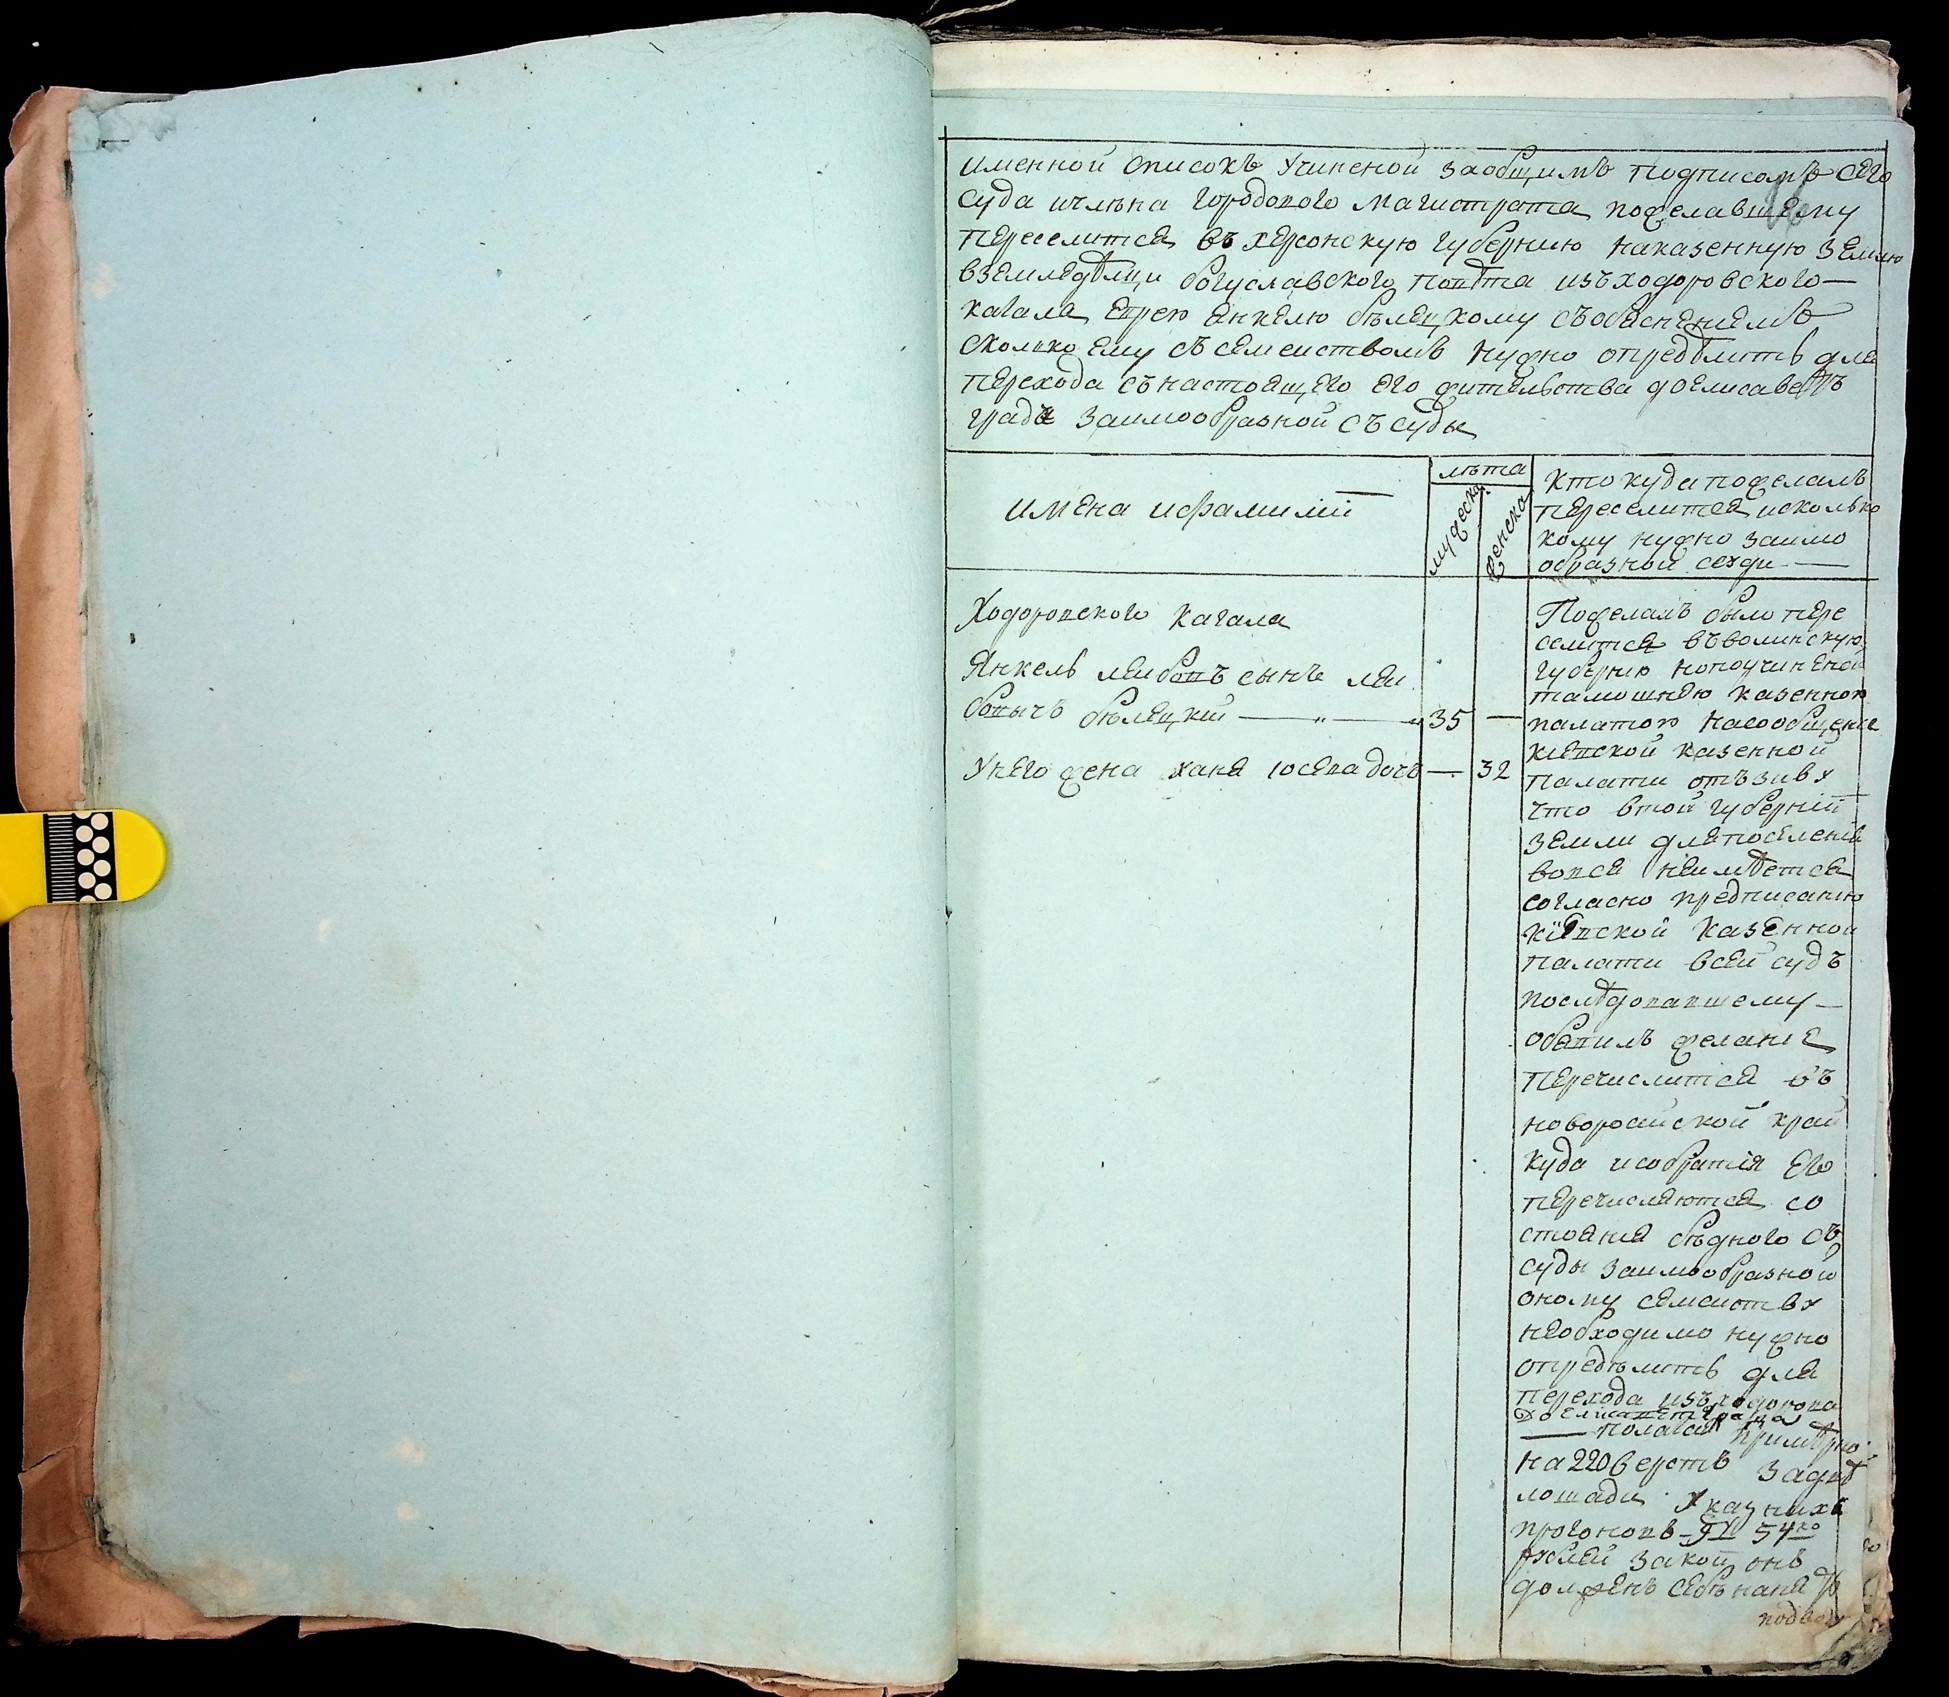 именной списокъ учиненой заобщимъ подписомъ сего
суда ичлѣна городового магистрата пожелавшему
переселитса въ херсонскую губернию наказенную землю
вземледѣлци богуславского повѣта изъходоровского—
кагала Еврею Янкелю бѣлецкому съобяснениемъ
сколко ему съ семеиствомъ нужно определить для
перехода съ настоящего его жителства доелисаветъ
граде заимообразной съ суды
имена ифамилїи
лѣта
мужеска
женска
кто куда пожелалъ
переселится исколько
кому нужно заимо
образной сехди —
Ходоровского кагала
Янкель леибовъ сынъ леи
бовычъ бѣлецкїи — „ — „ 35 —
Унего жена ханя юсева дочъ — 32
Пожелалъ было пере
селится въволинскую
губернию нопоучиненой
тамошнею казенною
палатою насообщение
киевской казенной
палати отъзиву
что втой губернїи
земли для поселения
вовся неимѣется
согласно предписанию
кїевской казенной
палати всей судъ
последовавшему —
обявилъ желание
перечислится въ
новоросииской край
куда исобратїя его
перечисляются со
стояния бѣдного съ
суды заимообразной
оному семеиству
необходимо нужно
определить для
перехода изъ ходорова
до Елисаветграда
— полагая примѣрно
на 220 верстъ за двѣ
лошади указнихъ
прогоновъ 54 ко
рублей закои онъ
долженъ себѣ нанять
подвод